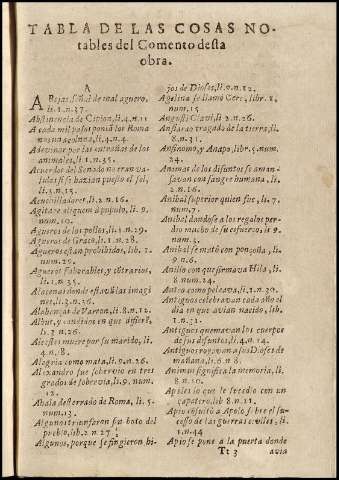 TABLA DE LAS COSAS NO-
tables del Comento desta
obra.
A
ABejas, señal de mal aguero,
li. 1. n. 37.
Abstinencia de Cimon, li. 4. n. 11
A cada mil passos ponia los Roma
nos una colũna, li. 4. n. 4.
Adevinar por las entrañas de los
animales, li 1. n. 35.
Acuerdos del Senado no eran va-
lidos si se hazian puesto el sol,
li. 3. n. 15.
Acuchilladores, li. 2. n. 16.
li. 9.
num. 10.
Agueros de los pollos, li. 1. n. 29.
Agueros de Graco, li. 1. n. 28.
Agueros eran prohibidos, lib. 1.
num. 29.
Agueros favorables, y cõtrarios,
li. 1. n. 35.
Alacenas donde estavã las imagi
nes, li. 3. n. 26.
Alabanças de Varron, li. 8. n. 12.
Albur, y candidus en que differẽ,
li. 3 n. 26.
Alcestes muere por su marido, li.
4. n. 8.
Alegria como mata, li. 9. n. 26.
Alexandro fue sobervio en tres
grados de sobervia, li. 9. num.
12.
Ahala desterrado de Roma, li. 5.
num. 13.
Algunos triunfaron sin voto del
pueblo, lib. 2. n. 27.
Algunos, porque se fingieron hi-
jos de Dioses, li. 9. n. 12.
Agelina se llamò Ceres, libr. 1,
num. 15
Angusti Clavi, li 2. n. 26.
Ansiarao tragado de la tierra, li.
8. n. 31.
Ansinomo, y Anapo, libr. 5. num.
24.
Anemas de los difuntos se aman-
savan con sangre humana, li.
2. n. 16.
Anibal superior quien fue, li 7.
num. 7.
Anibal dandose a los regalos per-
dio mucho de su esfuerço, li 9.
num. 3.
Anibal se matò con ponçoña, li.
9 n. 6.
Anillo con que firmava Hila, li.
8 num. 24.
Antea como peleava, li. 1. n. 30.
Antiguos celebravan cada año el
dia en que avian nacido, lib.
1. n. 31.
Antiguos quemavan los cuerpos
de sus difuntos, li. 4. n. 14.
Antiguos rogavan a sus Dioses de
mañana, li. 8. num. 26.
Animus significa la memoria, li.
8. n. 10.
Apeles lo que le sucedio con un
capatero, lib 8. n. 11.
Apio cõsultò a Apolo sobre el su-
cesso de las guerras civiles, li.
1. n. 44
Apio se pone a la puerta donde
Tt 3 avia